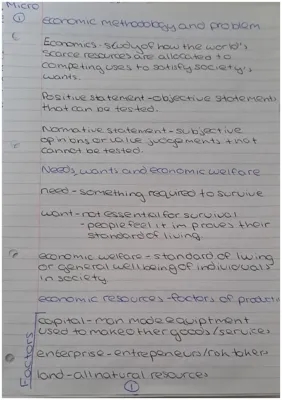 Micro
① economic methodology and problem
Economics - study of how the world's
scarce resources are allocated to
competing uses to satisfy society's
wants.
Positive statement - objective statements
that can be tested.
Normative statement - subjective
opinions or value judgements + not
cannot be tested.
Needs, wants and economic welfare
need - something required to survive
want - not essential for survival
- people feel it improves their
standard of living
economic welfare - standard of living
or general wellbeing of individuals
in society.
economic resources - factors of producti
Factors
capital - man made equiptment
used to make other goods/services
enterprise - entrepeneurs/risk takers
land - all natural resources
①